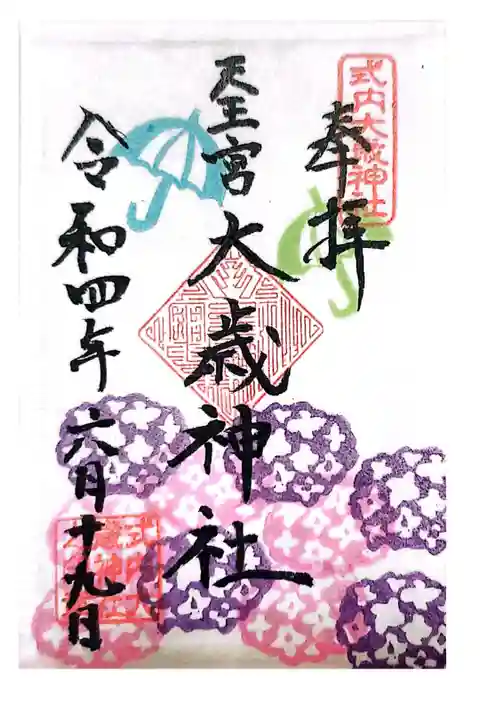 式内大歳神社
奉拝
天王宮
大歳神社
令和四年
六月十九日